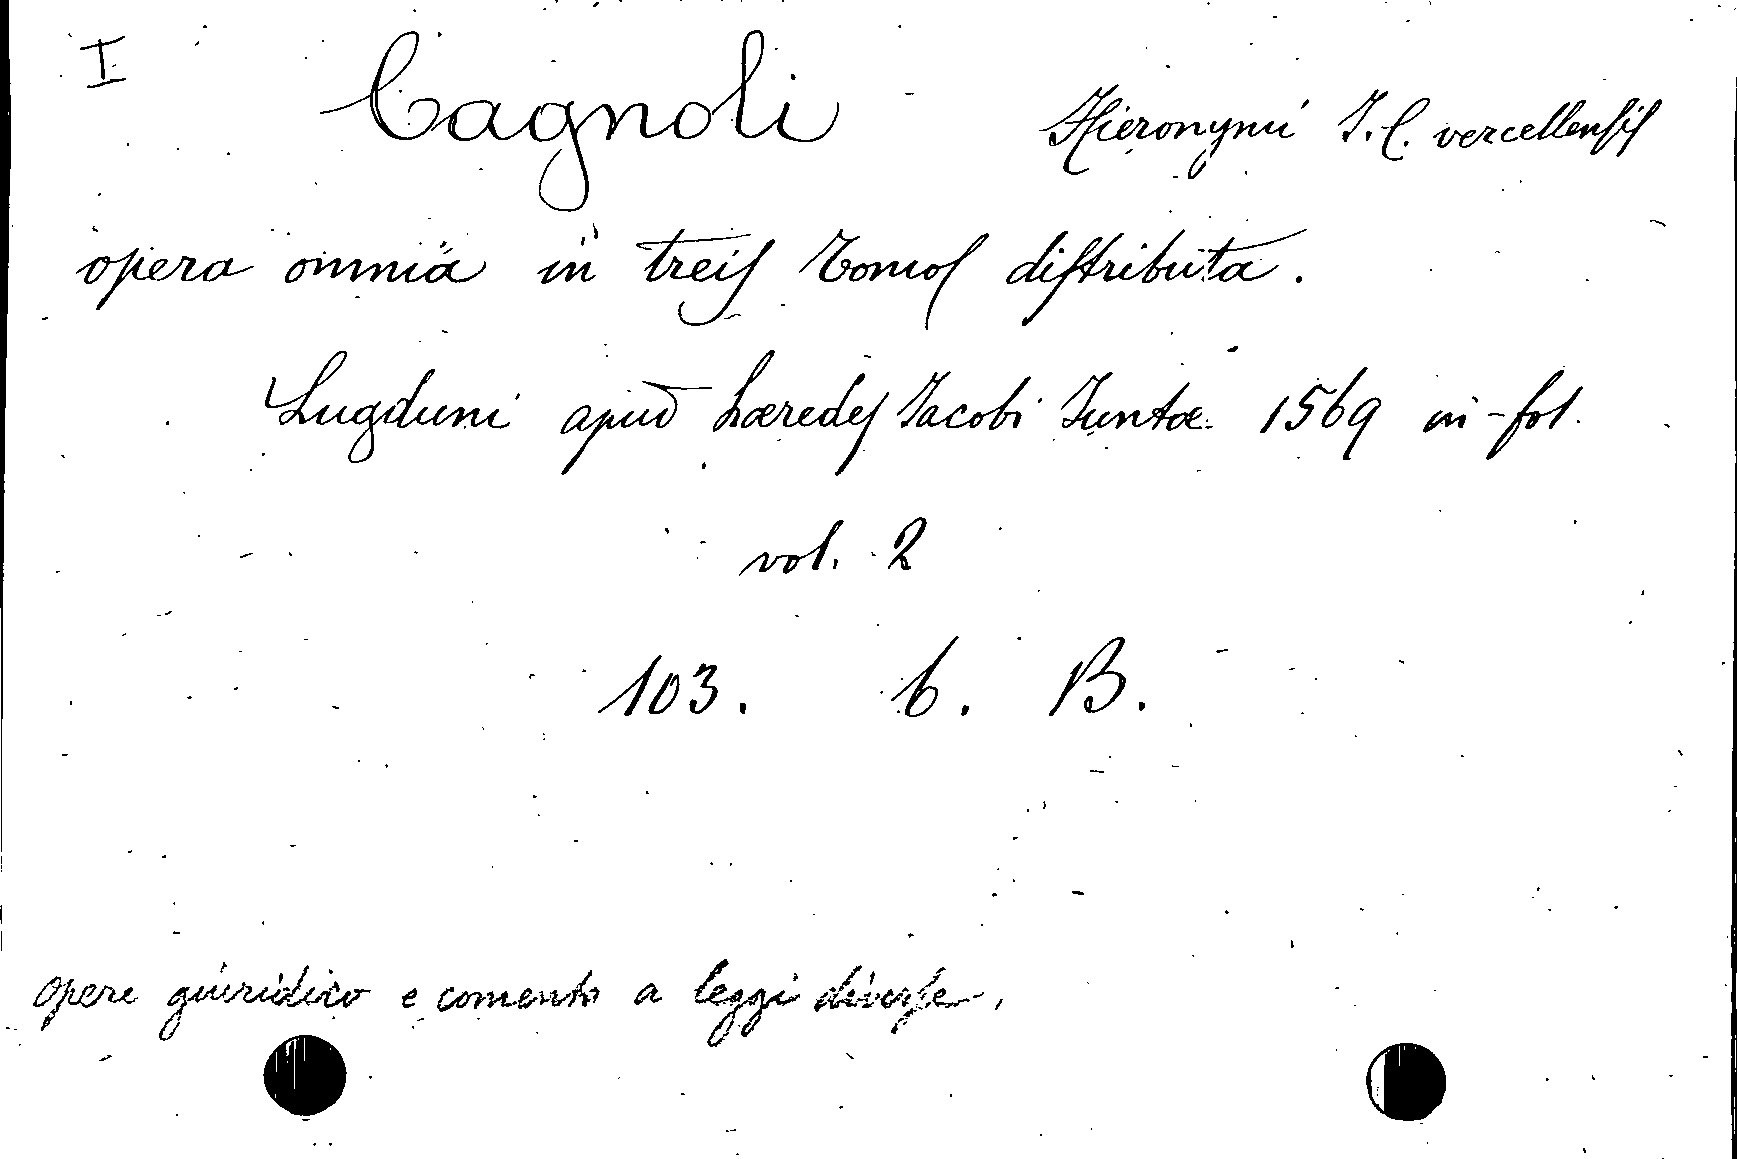 I
Cagnoli Hieronymi J. C. vercellensis
opera omnia in treis tomos distributa.
Lugduni apud hæredes Jacobi Juntæ 1569 in-fol.
vol. 2
103. 6. B.
opere giuridico e comento a leggi diverse.